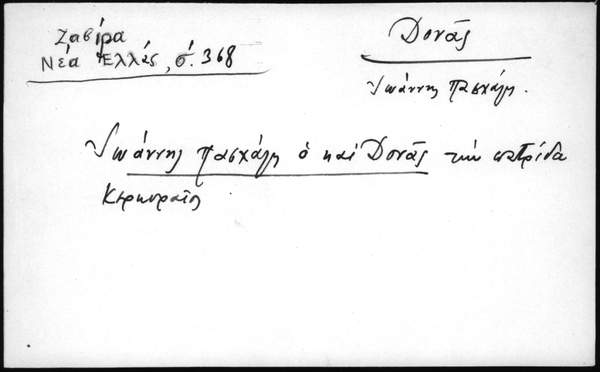 Ζαβίρα
Νέα Ἑλλάς, σ. 368
Δονᾶς
Ἰωάννης Πασχάλη.
Ἰωάννης Πασχάλη ὁ καὶ Δονᾶς τὴν πατρίδα
Κερκυραῖος